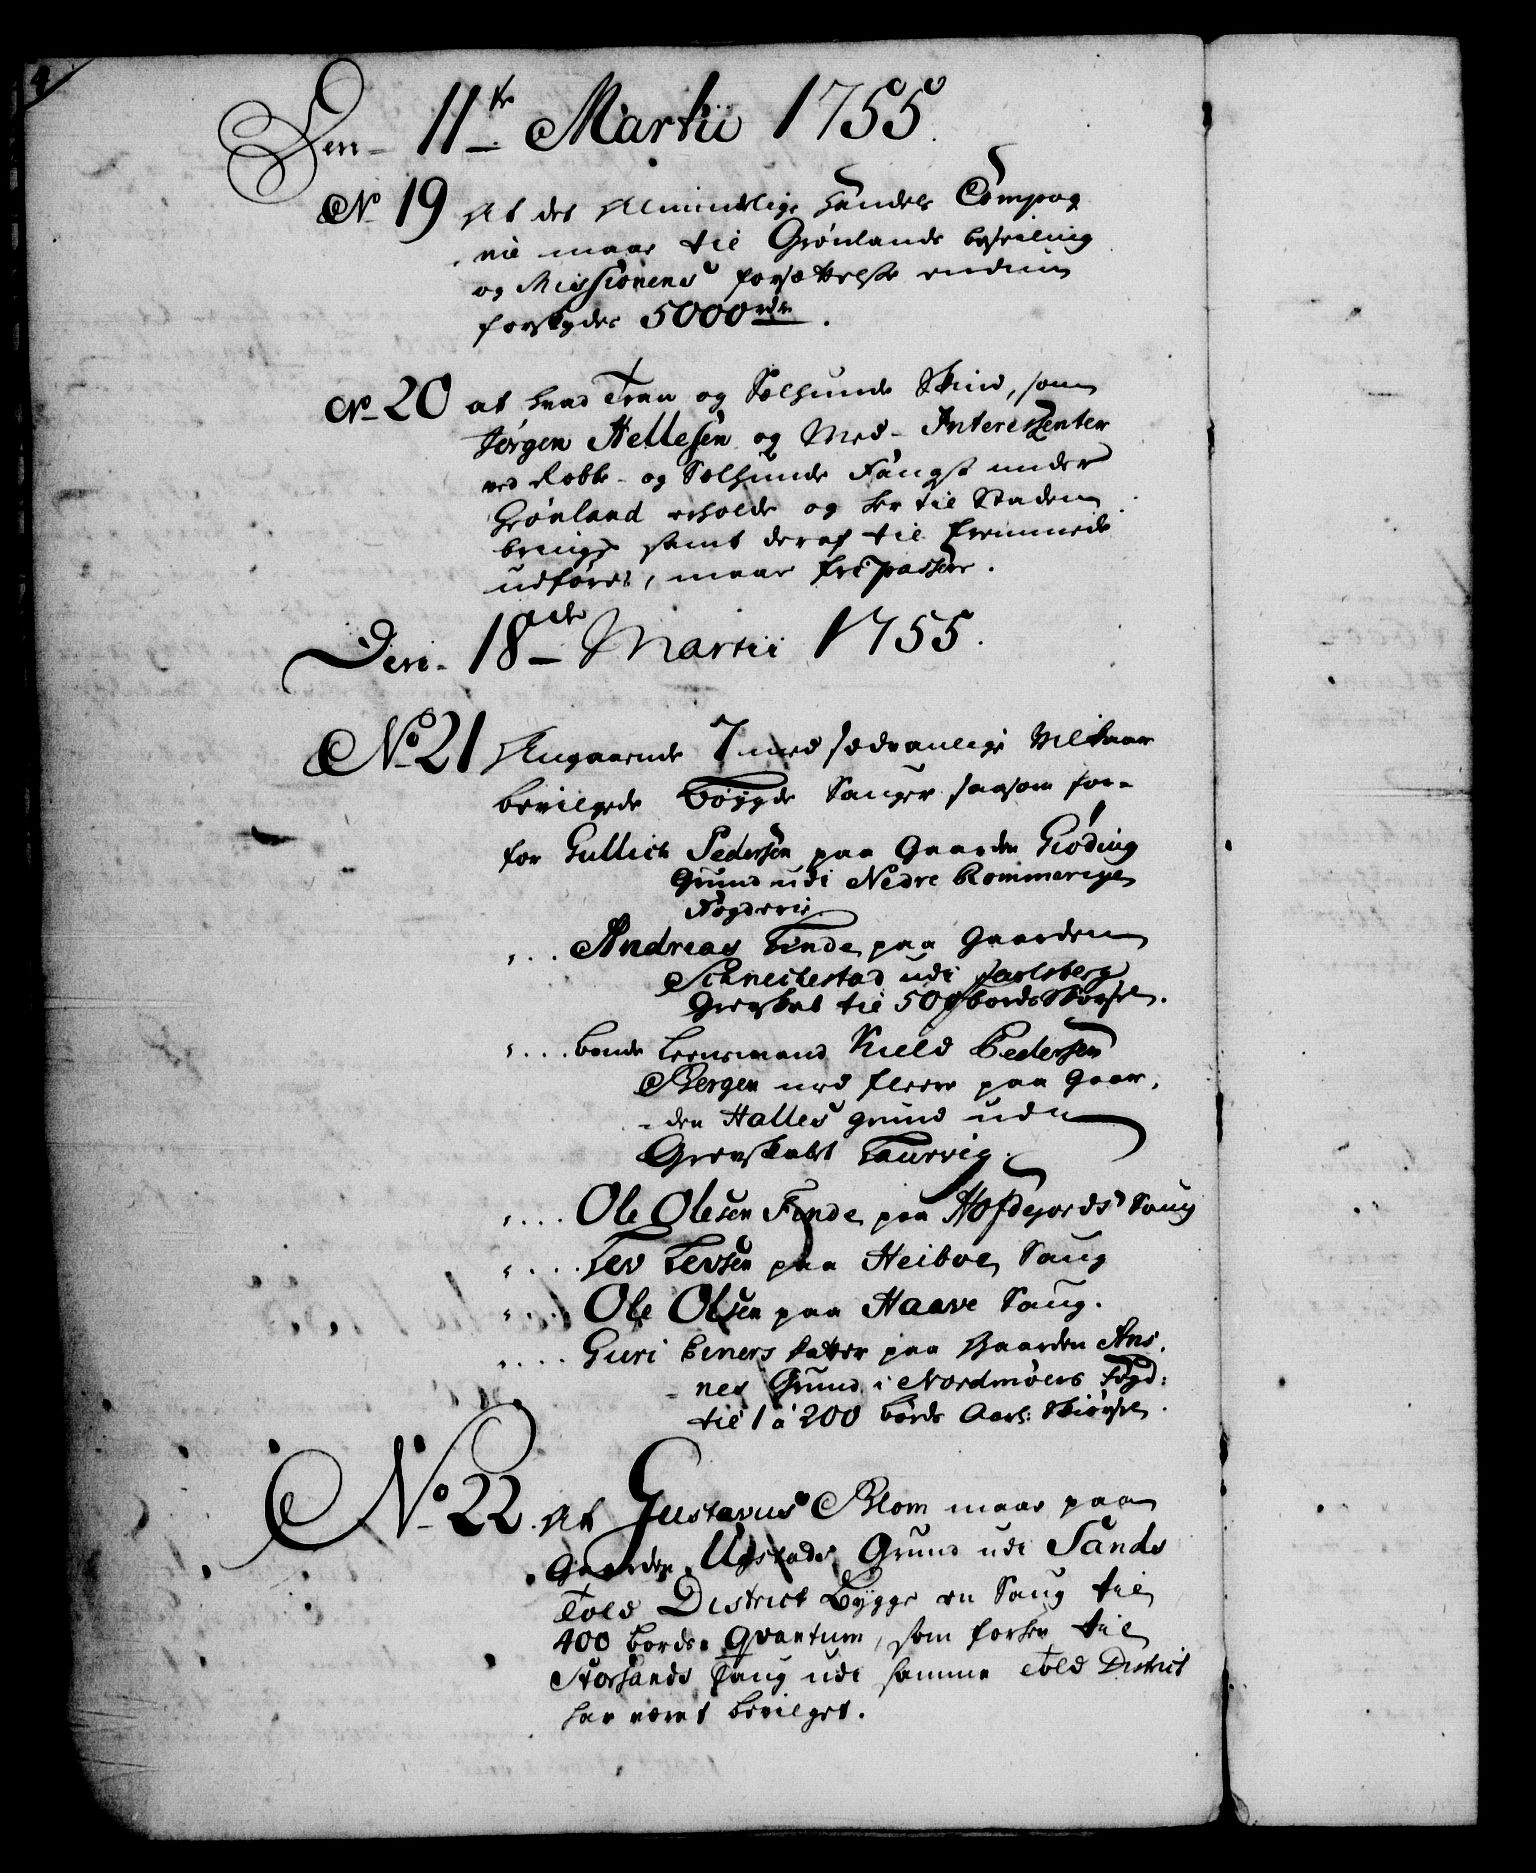 4
Den 11te Martii 1755.
No 19 At det Almindelige Handels Compag
nie maae til Grønlands beseiling
og Missionens forsættelse endnu
forskydes 5000 rdr.
No 20 at hvad Tran og Sælhunde Skind, som
Jørgen Hellesen og Med-Interessenter
ved Robbe- og Sælhunde Fangst under
Grønland erholde og her til Staden
bringe samt deraf til fremmede
udføres, maae frie passere.
Den 18de Martii 1755.
No 21 Angaaende 7 med sædvanlige Vilkaar
bevilgede Bøygde Sauger saasom for-
for Gullich Pedersen paa Gaarden Giøding
Grund udi Nedre Rommerige
Fogderie
... Andreas Finde paa Gaarden
Schneckestad udi Jarlsberg
Grevskab til 500 bords Skiørsel.
.... bonde Leensmand Kield Pedersen
Bergen med fleere paa Gaar-
den Halles grund udi
Grevskabet Laurvig.
.... Ole Olesen Finde paa Hofdejords Saug
.... Lev Levsen paa Heiboe Saug
.... Ole Olsen paa Haave Saug.
.... Guri Einers datter paa Gaarden Aas-
nes Grund i Nordmøers Fogd:
til 1 à 200 bords Aarl: Skiørsel.
No 22. At Gustavus Blom maae paa
Gaarden Ugstads Grund udi Sands
Told District bygge en Saug til
400 borders Qvantum, som forhen til
Storsands Saug udi samme Told District
har været bevilget.